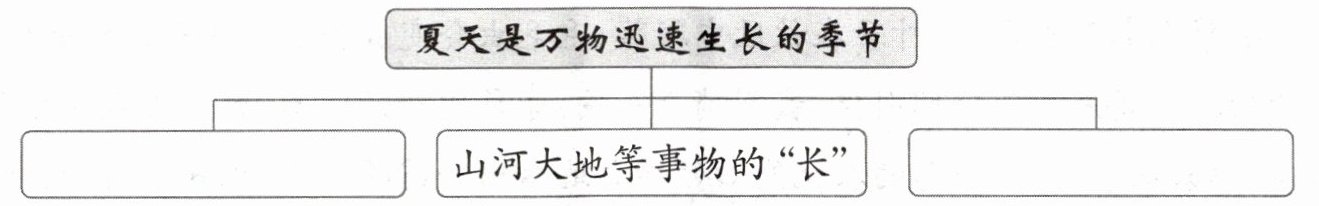 夏天是万物迅速生长的季节
山河大地等事物的“长”